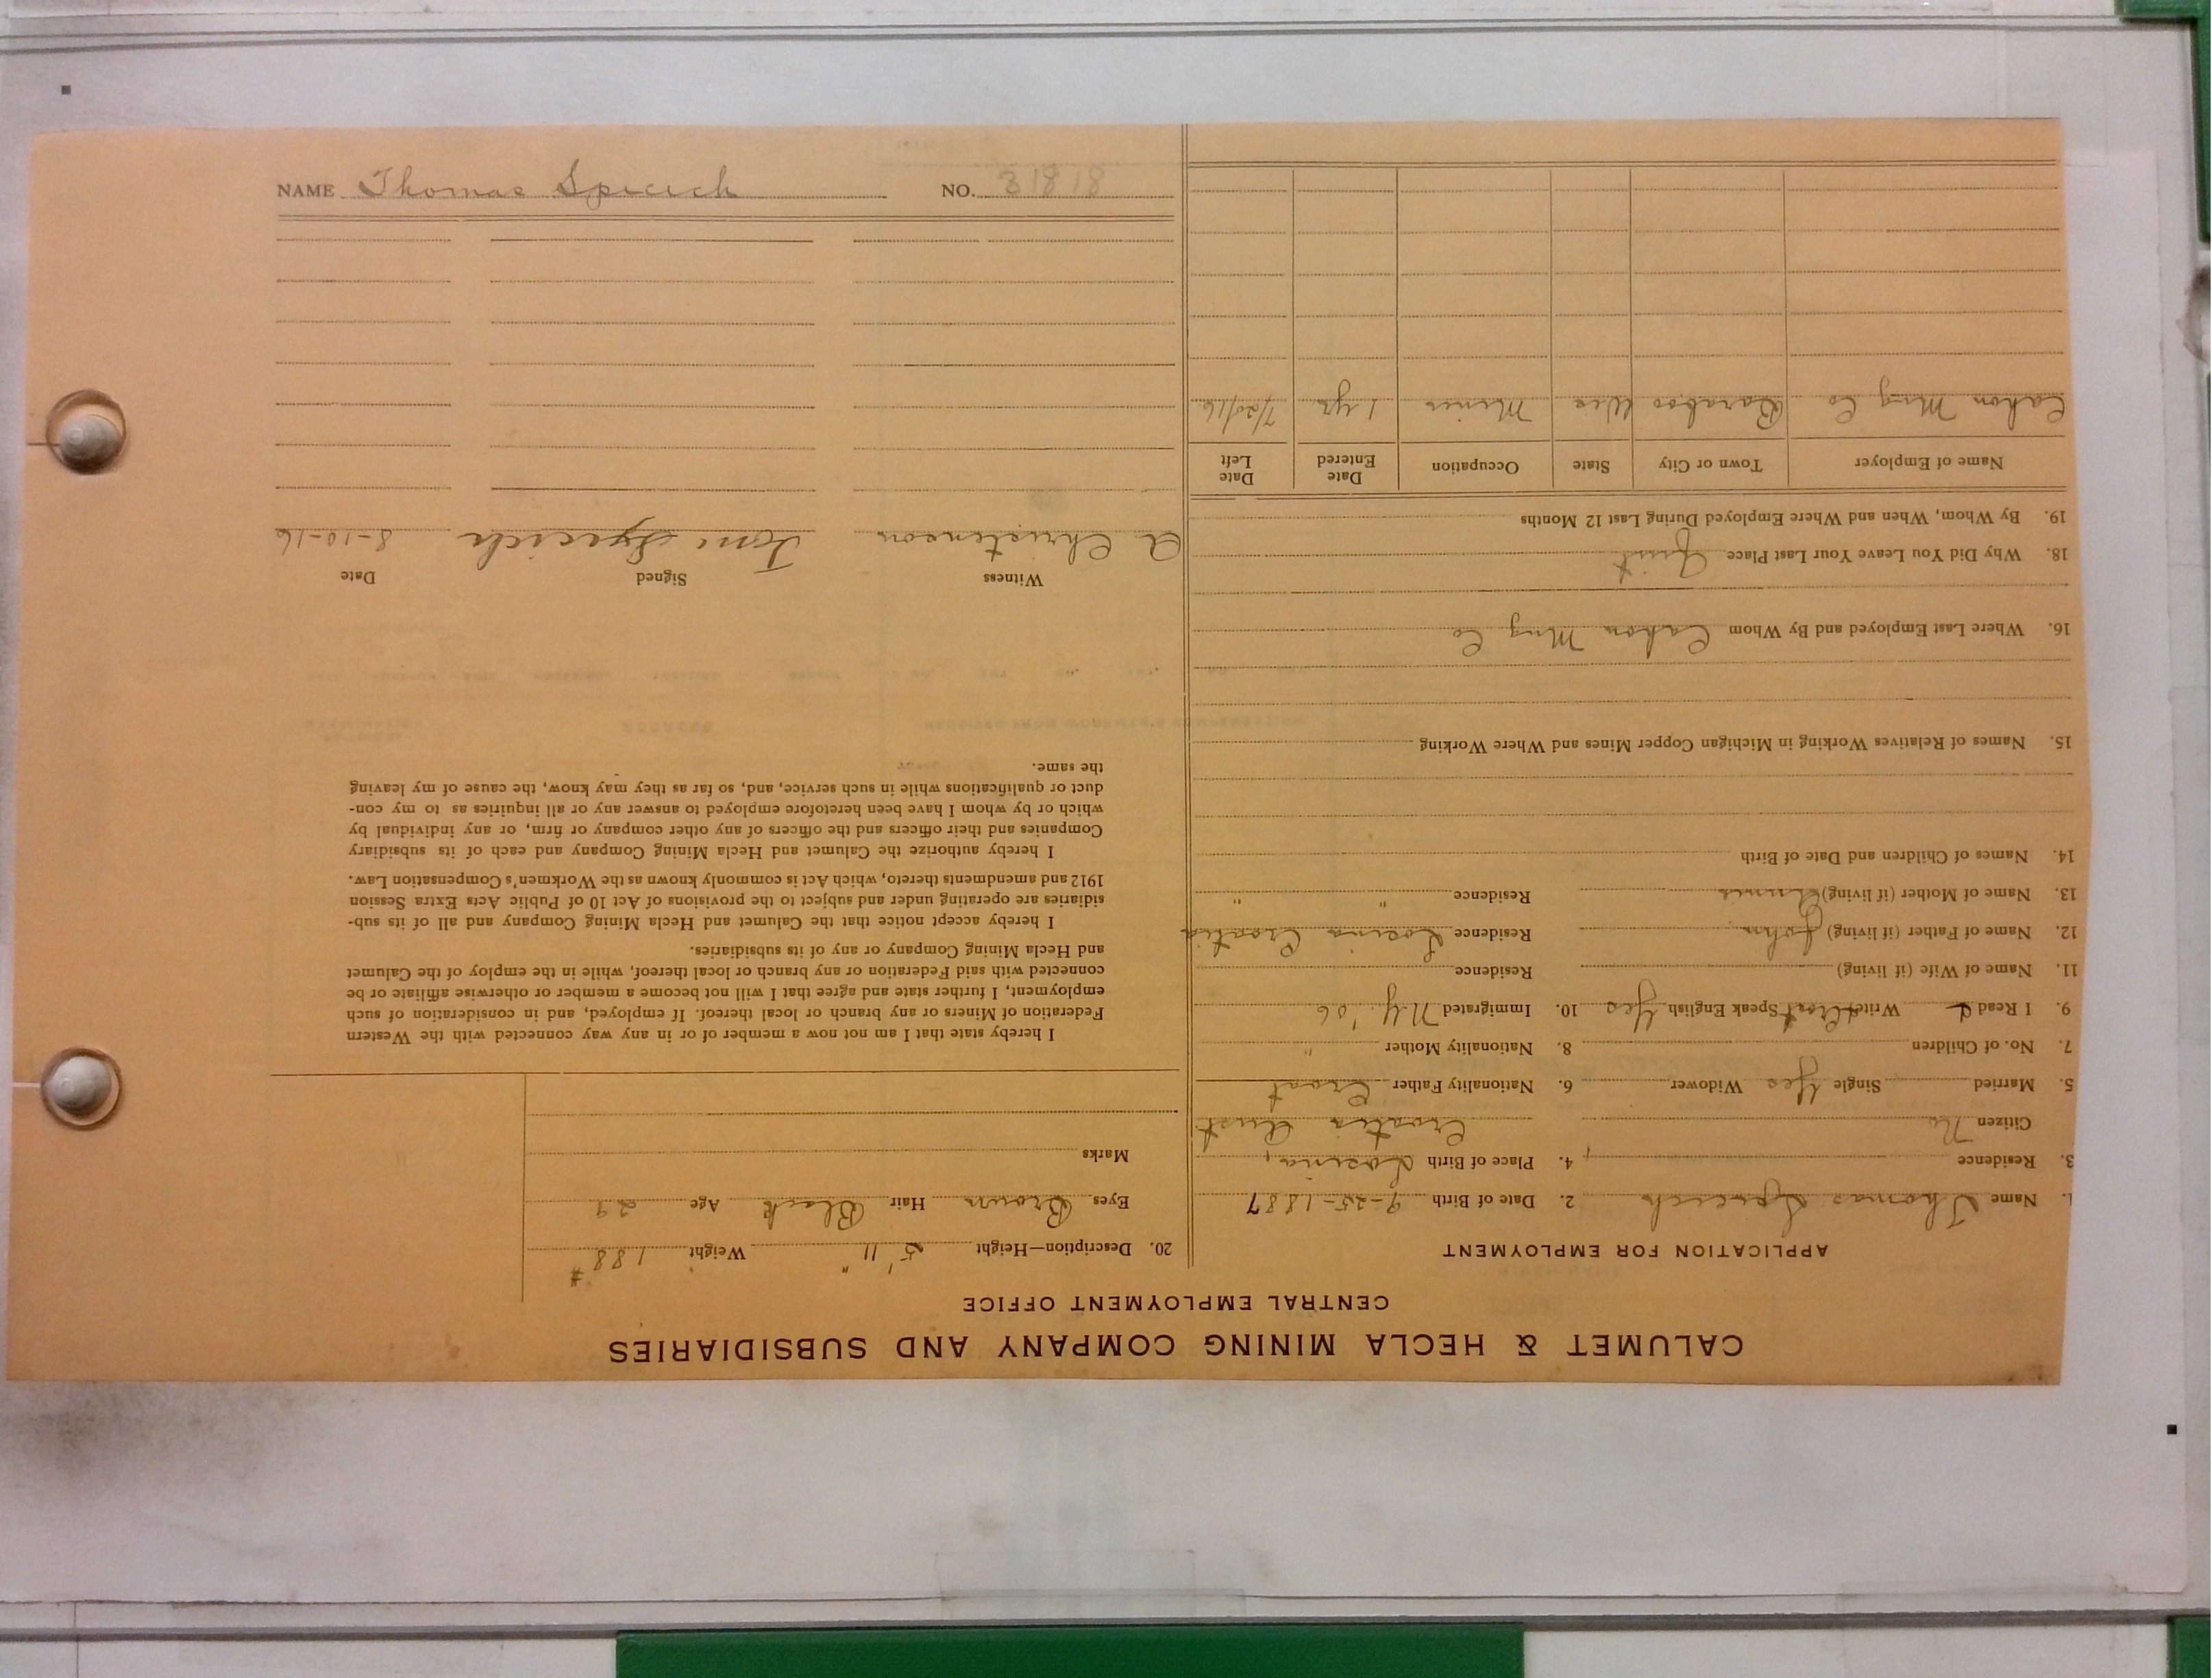 CALUMET & HECLA MINING COMPANY AND SUBSIDIARIES
CENTRAL EMPLOYMENT OFFICE
APPLICATION FOR EMPLOYMENT
1. Name Thomas Specich 2. Date of Birth 9-25-1887
3. Residence 4. Place of Birth Losina,
Citizen No Croatia Aust
5. Married Single Yes Widower 6. Nationality Father Croat
7. No. of Children 8. Nationality Mother "
9. I Read & Write Croat Speak English Yes 10. Immigrated N.Y. '06
11. Name of Wife (if living) Residence
12. Name of Father (if living) John Residence Losina Croatia
13. Name of Mother (if living) Residence " "
14. Names of Children and Date of Birth
15. Names of Relatives Working in Michigan Copper Mines and Where Working
16. Where Last Employed and By Whom Cahon Mng Co
18. Why Did You Leave Your Last Place Quit
19. By Whom, When and Where Employed During Last 12 Months
Name of Employer Town or City State Occupation Date Entered Date Left
Cahon Mng Co Baraboo Wis Miner 1 yr 7/20/16
20. Description—Height 5' 11" Weight 188#
Eyes Brown Hair Black Age 29
Marks
I hereby state that I am not now a member of or in any way connected with the Western
Federation of Miners or any branch or local thereof. If employed, and in consideration of such
employment, I further state and agree that I will not become a member or otherwise affiliate or be
connected with said Federation or any branch or local thereof, while in the employ of the Calumet
and Hecla Mining Company or any of its subsidiaries.
I hereby accept notice that the Calumet and Hecla Mining Company and all of its sub-
sidiaries are operating under and subject to the provisions of Act 10 of Public Acts Extra Session
1912 and amendments thereto, which Act is commonly known as the Workmen's Compensation Law.
I hereby authorize the Calumet and Hecla Mining Company and each of its subsidiary
Companies and their officers and the officers of any other company or firm, or any individual by
which or by whom I have been heretofore employed to answer any or all inquiries as to my con-
duct or qualifications while in such service, and, so far as they may know, the cause of my leaving
the same.
Witness Signed Date
A Christenson Tom Specich 8-10-16
NAME Thomas Specich NO. 31818